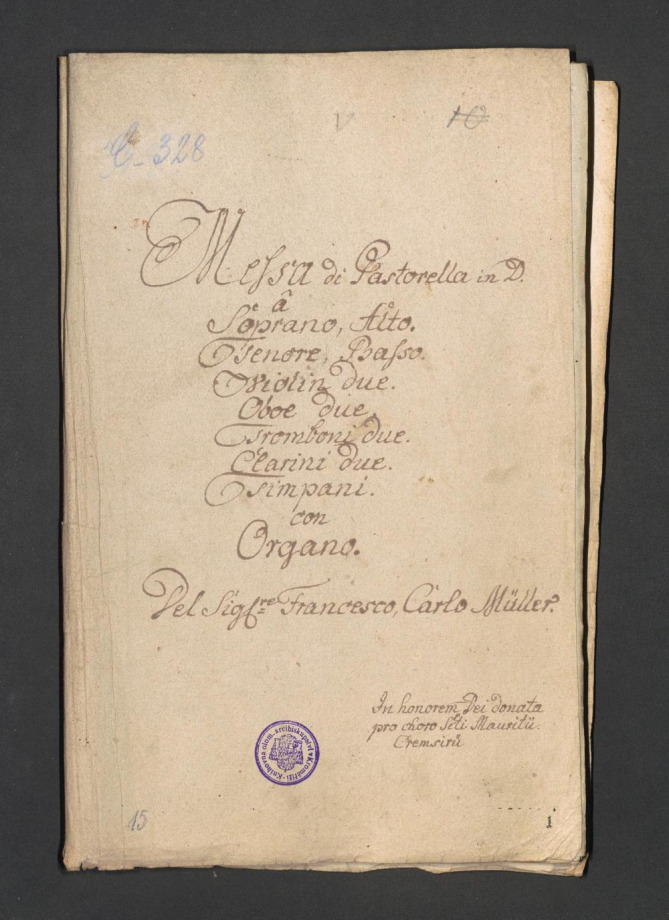 V 10
C. 328
Messa di Pastorella in D.
â
Soprano, Alto.
Tenore, Basso.
Violin due.
Oboe due.
Tromboni due.
Clarini due.
Tsimpani.
con
Organo.
Del Sig:re Francesco, Carlo Müller.
In honorem Dei donata
pro choro Scti Mauritii.
Cremsirii
Knihovna olom. arcibiskupství v Kroměříži
15
1